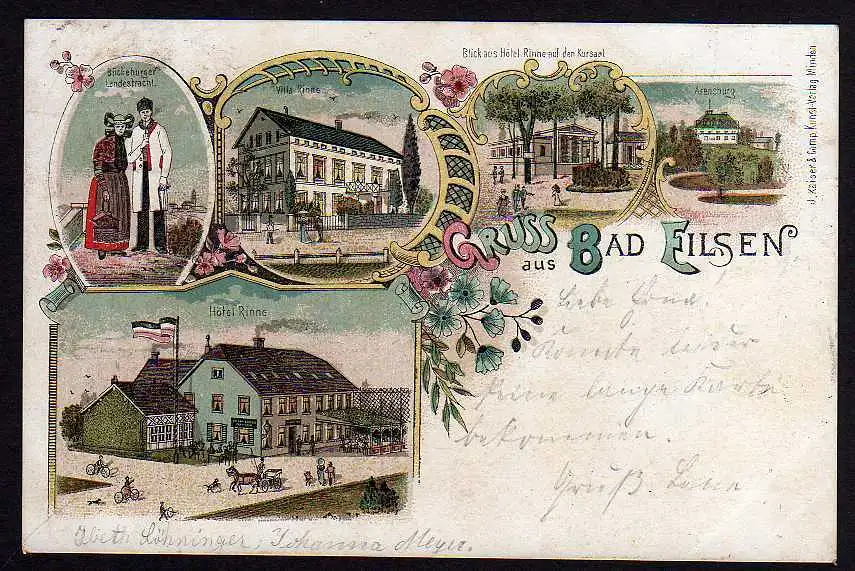 Bückeburger
Landestracht.
Villa Rinne
Blick aus Hôtel Rinne auf den Kursaal
Arensburg
J. Kayser & Comp. Kunst-Verlag Minden
GRUSS
aus BAD EILSEN
Hôtel Rinne
Liebe
Konnte leider
keine lange Karte
bekommen.
Gruß
Löhninger, Johanna Meyer.